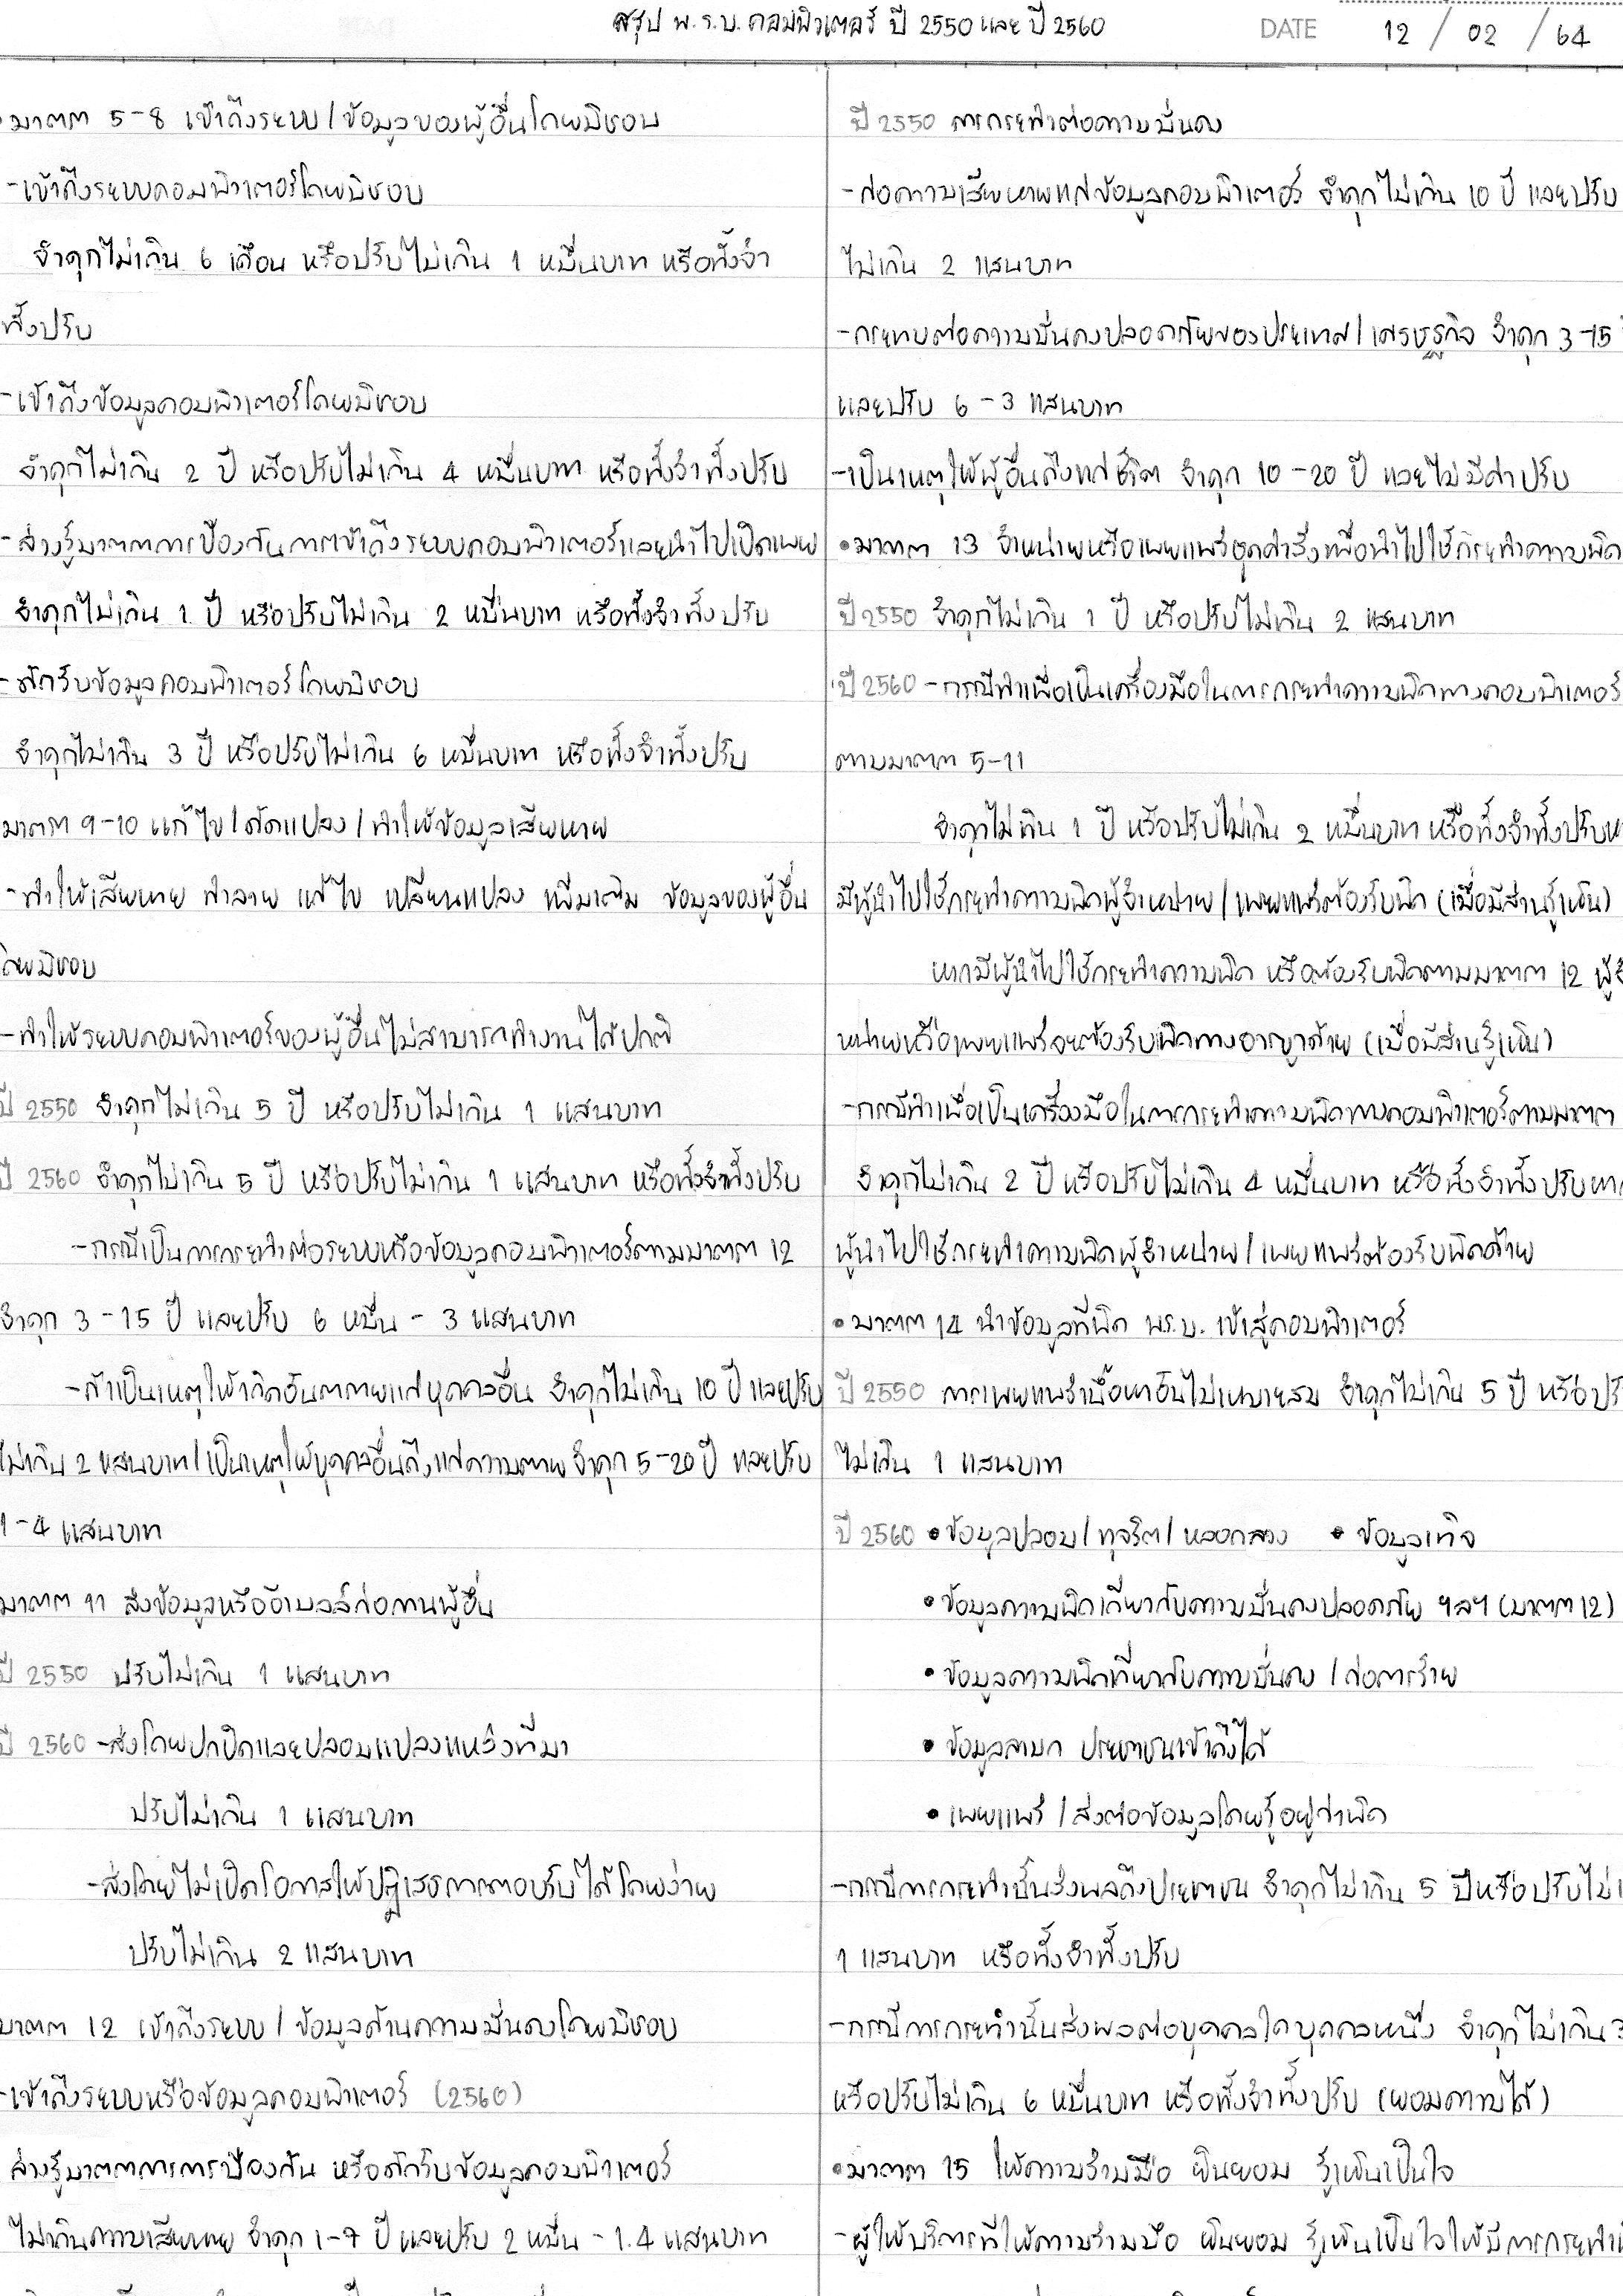 สรุป พ.ร.บ. คอมพิวเตอร์ ปี 2550 และ ปี 2560
DATE 12 / 02 / 64
มาตรา 5-8 เข้าถึงระบบ/ข้อมูลของผู้อื่นโดยมิชอบ
-เข้าถึงระบบคอมพิวเตอร์โดยมิชอบ
จำคุกไม่เกิน 6 เดือน หรือปรับไม่เกิน 1 หมื่นบาท หรือทั้งจำ
ทั้งปรับ
-เข้าถึงข้อมูลคอมพิวเตอร์โดยมิชอบ
จำคุกไม่เกิน 2 ปี หรือปรับไม่เกิน 4 หมื่นบาท หรือทั้งจำทั้งปรับ
-ล่วงรู้มาตรการป้องกันการเข้าถึงระบบคอมพิวเตอร์และนำไปเปิดเผย
จำคุกไม่เกิน 1 ปี หรือปรับไม่เกิน 2 หมื่นบาท หรือทั้งจำทั้งปรับ
-ดักรับข้อมูลคอมพิวเตอร์โดยมิชอบ
จำคุกไม่เกิน 3 ปี หรือปรับไม่เกิน 6 หมื่นบาท หรือทั้งจำทั้งปรับ
มาตรา 9-10 แก้ไข/ดัดแปลง/ทำให้ข้อมูลเสียหาย
-ทำให้เสียหาย ทำลาย แก้ไข เปลี่ยนแปลง เพิ่มเติม ข้อมูลของผู้อื่น
โดยมิชอบ
-ทำให้ระบบคอมพิวเตอร์ของผู้อื่นไม่สามารถทำงานได้ปกติ
ปี 2550 จำคุกไม่เกิน 5 ปี หรือปรับไม่เกิน 1 แสนบาท
ปี 2560 จำคุกไม่เกิน 5 ปี หรือปรับไม่เกิน 1 แสนบาท หรือทั้งจำทั้งปรับ
-กรณีเป็นการกระทำต่อระบบหรือข้อมูลคอมพิวเตอร์ตามมาตรา 12
จำคุก 3 -15 ปี และปรับ 6 หมื่น - 3 แสนบาท
-ถ้าเป็นเหตุให้เกิดอันตรายแก่บุคคลอื่น จำคุกไม่เกิน 10 ปี และปรับ
ไม่เกิน 2 แสนบาท/เป็นเหตุให้บุคคลอื่นถึงแก่ความตาย จำคุก 5-20 ปี และปรับ
1-4 แสนบาท
มาตรา 11 ส่งข้อมูลหรืออีเมลล์ก่อกวนผู้อื่น
ปี 2550 ปรับไม่เกิน 1 แสนบาท
ปี 2560 -ส่งโดยปกปิดและปลอมแปลงแหล่งที่มา
ปรับไม่เกิน 1 แสนบาท
-ส่งโดยไม่เปิดโอกาสให้ปฏิเสธการตอบรับได้โดยง่าย
ปรับไม่เกิน 2 แสนบาท
มาตรา 12 เข้าถึงระบบ/ข้อมูลด้านความมั่นคงโดยมิชอบ
-เข้าถึงระบบหรือข้อมูลคอมพิวเตอร์ (2560)
ล่วงรู้มาตรการการป้องกัน หรือดักรับข้อมูลคอมพิวเตอร์
ไม่เกิดความเสียหาย จำคุก 1-7 ปี และปรับ 2 หมื่น - 1.4 แสนบาท
ปี 2550 การกระทำต่อความมั่นคง
-ก่อความเสียหายแก่ข้อมูลคอมพิวเตอร์ จำคุกไม่เกิน 10 ปี และปรับ
ไม่เกิน 2 แสนบาท
-กระทบต่อความมั่นคงปลอดภัยของประเทศ/เศรษฐกิจ จำคุก 3-15
และปรับ 6 -3 แสนบาท
-เป็นเหตุให้ผู้อื่นถึงแก่ชีวิต จำคุก 10 -20 ปี และไม่มีค่าปรับ
•มาตรา 13 จำหน่ายหรือเผยแพร่ชุดคำสั่งเพื่อนำไปใช้กระทำความผิด
ปี 2550 จำคุกไม่เกิน 1 ปี หรือปรับไม่เกิน 2 แสนบาท
ปี 2560 -กรณีทำเพื่อเป็นเครื่องมือในการกระทำความผิดทางคอมพิวเตอร์
ตามมาตรา 5-11
จำคุกไม่เกิน 1 ปี หรือปรับไม่เกิน 2 หมื่นบาท หรือทั้งจำทั้งปรับ
มีผู้นำไปใช้กระทำความผิดผู้จำหน่าย/เผยแพร่ต้องรับผิด (เมื่อมีส่วนรู้เห็น)
หากมีผู้นำไปใช้กระทำความผิด หรือต้องรับผิดตามมาตรา 12 ผู้จำ
หน่ายหรือเผยแพร่จะต้องรับผิดทางอาญาด้วย (เมื่อมีส่วนรู้เห็น)
-กรณีทำเพื่อเป็นเครื่องมือในการกระทำความผิดทางคอมพิวเตอร์ตามมาตรา
จำคุกไม่เกิน 2 ปี หรือปรับไม่เกิน 4 หมื่นบาท หรือทั้งจำทั้งปรับ
ผู้นำไปใช้กระทำความผิดผู้จำหน่าย/เผยแพร่ต้องรับผิดด้วย
•มาตรา 14 นำข้อมูลที่ผิด พ.ร.บ. เข้าสู่คอมพิวเตอร์
ปี 2550 การเผยแพร่เนื้อหาอันไม่เหมาะสม จำคุกไม่เกิน 5 ปี หรือ
ไม่เกิน 1 แสนบาท
ปี 2560 •ข้อมูลปลอม/ทุจริต/หลอกลวง •ข้อมูลเท็จ
•ข้อมูลความผิดเกี่ยวกับความมั่นคงปลอดภัย ฯลฯ (มาตรา 12)
•ข้อมูลความผิดเกี่ยวกับความมั่นคง/ก่อการร้าย
•ข้อมูลลามก ประชาชนเข้าถึงได้
•เผยแพร่/ส่งต่อข้อมูลโดยรู้อยู่ว่าผิด
-กรณีการกระทำนั้นส่งผลถึงประชาชน จำคุกไม่เกิน 5 ปีหรือปรับไม่
1 แสนบาท หรือทั้งจำทั้งปรับ
-กรณีการกระทำนั้นส่งผลต่อบุคคลใดบุคคลหนึ่ง จำคุกไม่เกิน 3
หรือปรับไม่เกิน 6 หมื่นบาท หรือทั้งจำทั้งปรับ (ยอมความได้)
•มาตรา 15 ให้ความร่วมมือ ยินยอม รู้เห็นเป็นใจ
-ผู้ให้บริการที่ให้ความร่วมมือ ยินยอม รู้เห็นเป็นใจให้มีการกระทำ